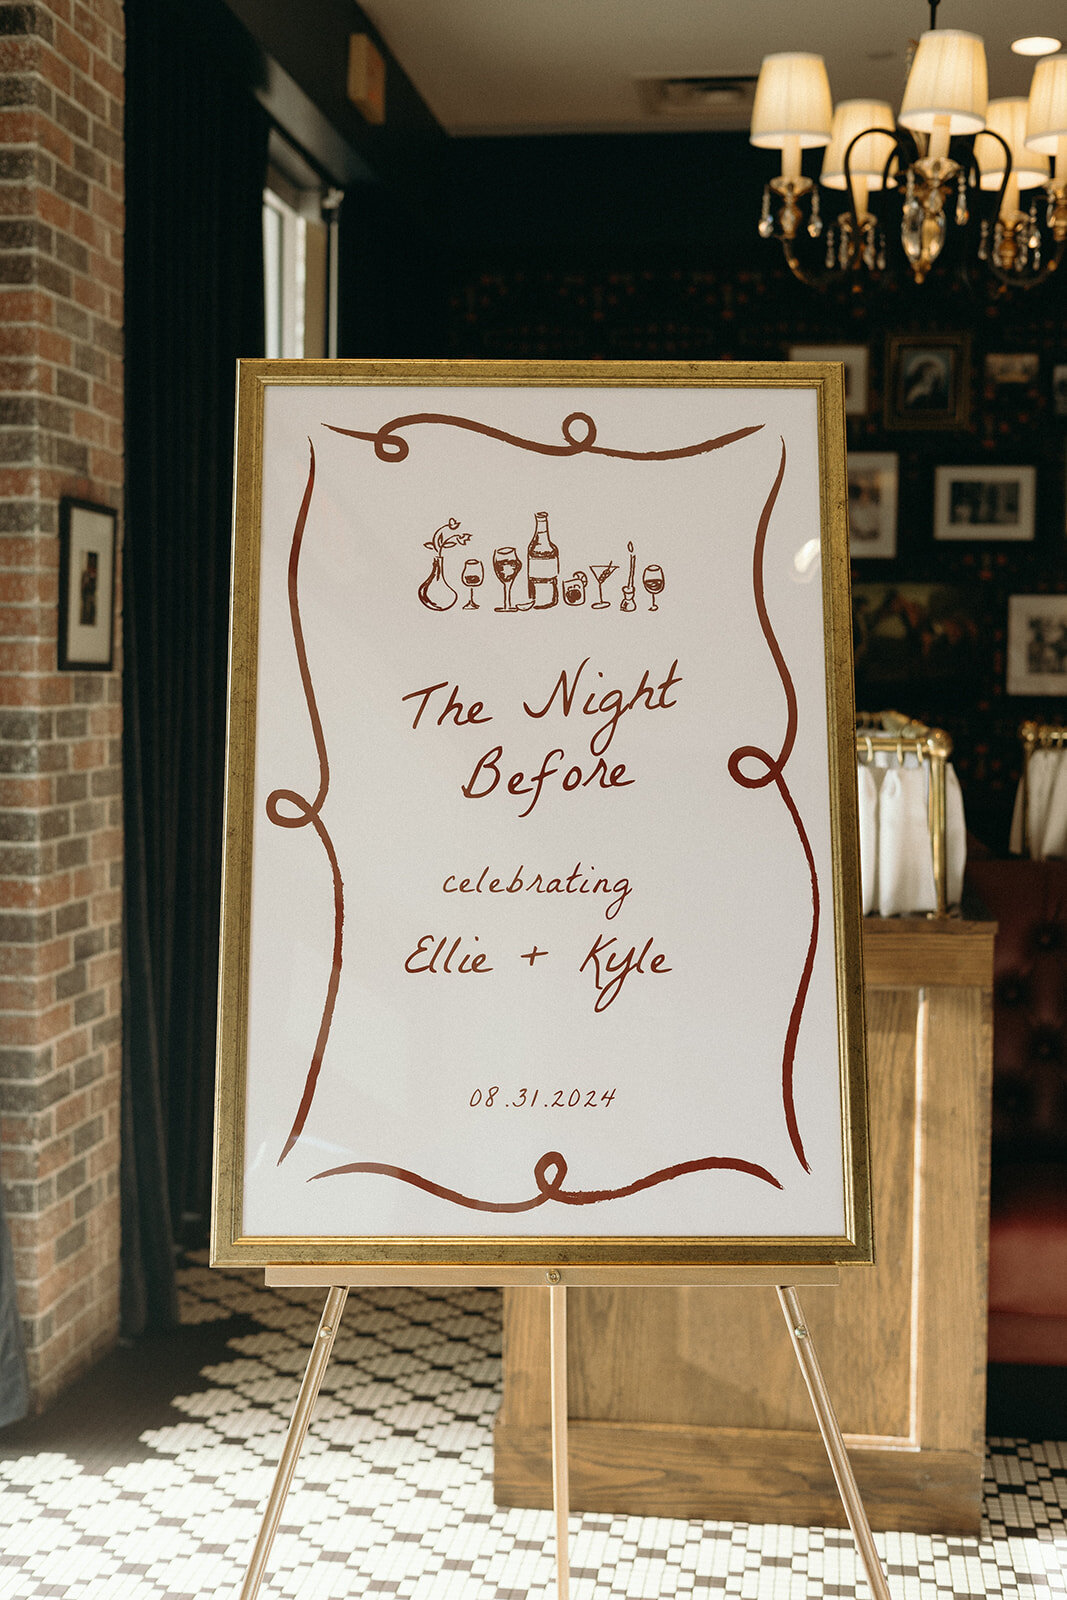 The Night
Before
celebrating
Ellie + Kyle
08.31.2024